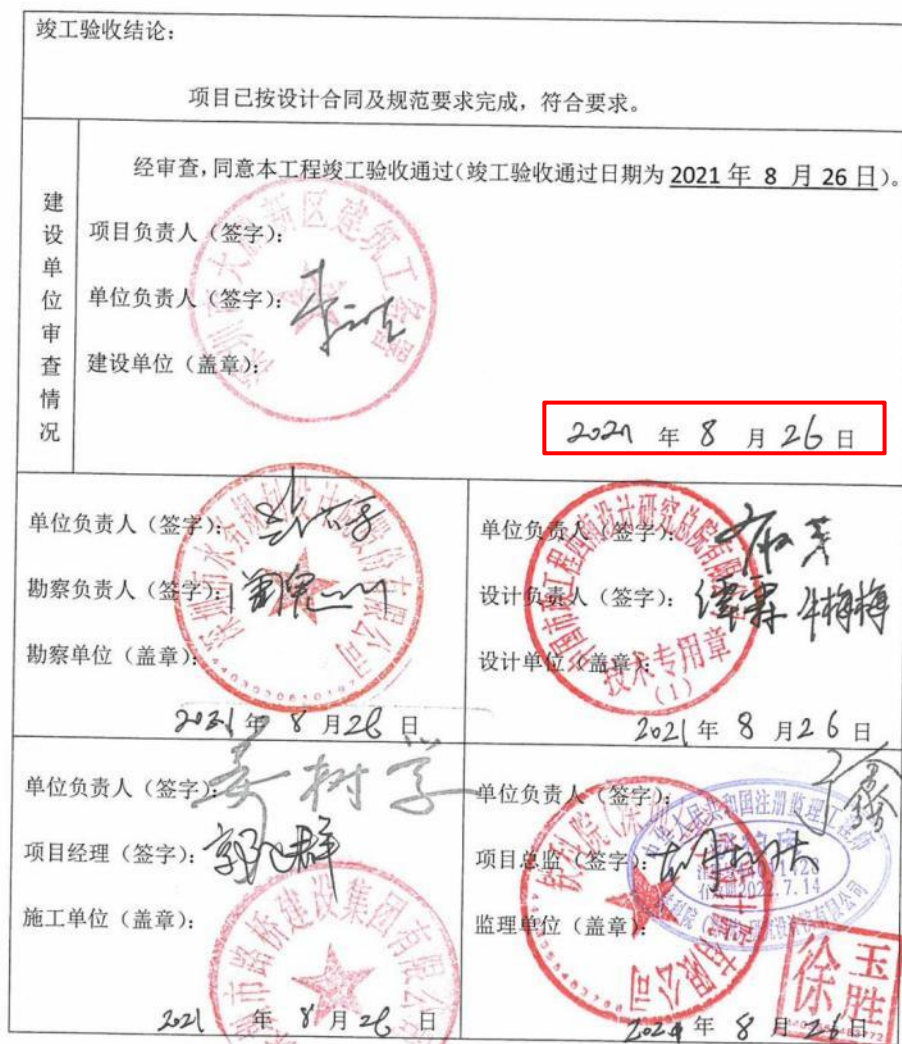 竣工验收结论：
项目已按设计合同及规范要求完成，符合要求。
建设单位审查情况
经审查，同意本工程竣工验收通过（竣工验收通过日期为 2021 年 8 月 26 日）。
项目负责人（签字）：
单位负责人（签字）：
建设单位（盖章）：
2021 年 8 月 26 日
单位负责人（签字）：
勘察负责人（签字）：
勘察单位（盖章）：
2021 年 8 月 26 日
单位负责人（签字）：
设计负责人（签字）： 谭霖 牛梅梅
设计单位（盖章）：
技术专用章
（1）
2021 年 8 月 26 日
单位负责人（签字）： 姜树学
项目经理（签字）：
施工单位（盖章）：
市路桥建设集团有限公
2021 年 8 月 26 日
单位负责人（签字）：
项目总监（签字）：
监理单位（盖章）：
中华人民共和国注册监理工程师
2022.7.14
徐玉胜
2021 年 8 月 26 日